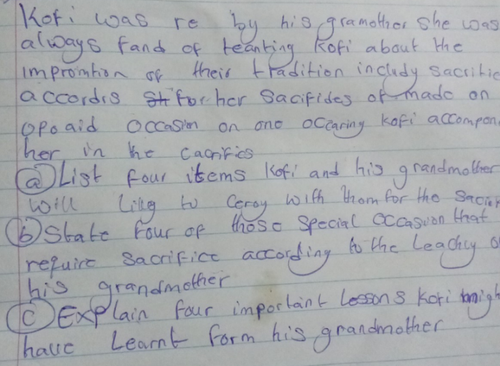 Kofi was re by his gramother she was
always fand of teanting Kofi about the
improntion of their tradition includy sacrific
accordis for her sacifides of made on
opoaid occasion on one occaring Kofi accompon
her in the cacrifics
(a) List four items Kofi and his grandmother
will ling to Ceroy with them for the sacrif
(b) State four of those special occasion that
require sacrifice according to the Leachy o
his grandmother
(c) Explain four important Lessons Kofi migh
have Learnt form his grandmother